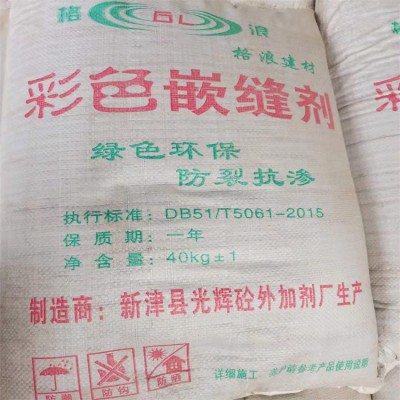 格 GL 浪
格浪建材
彩色嵌缝剂
绿色环保
防裂抗渗
执行标准：DB51/T5061-2015
保质期：一年
净含量：40kg±1
制造商：新津县光辉砼外加剂厂生产
防潮 防钩 防晒
详细施工 参考产品使用说明